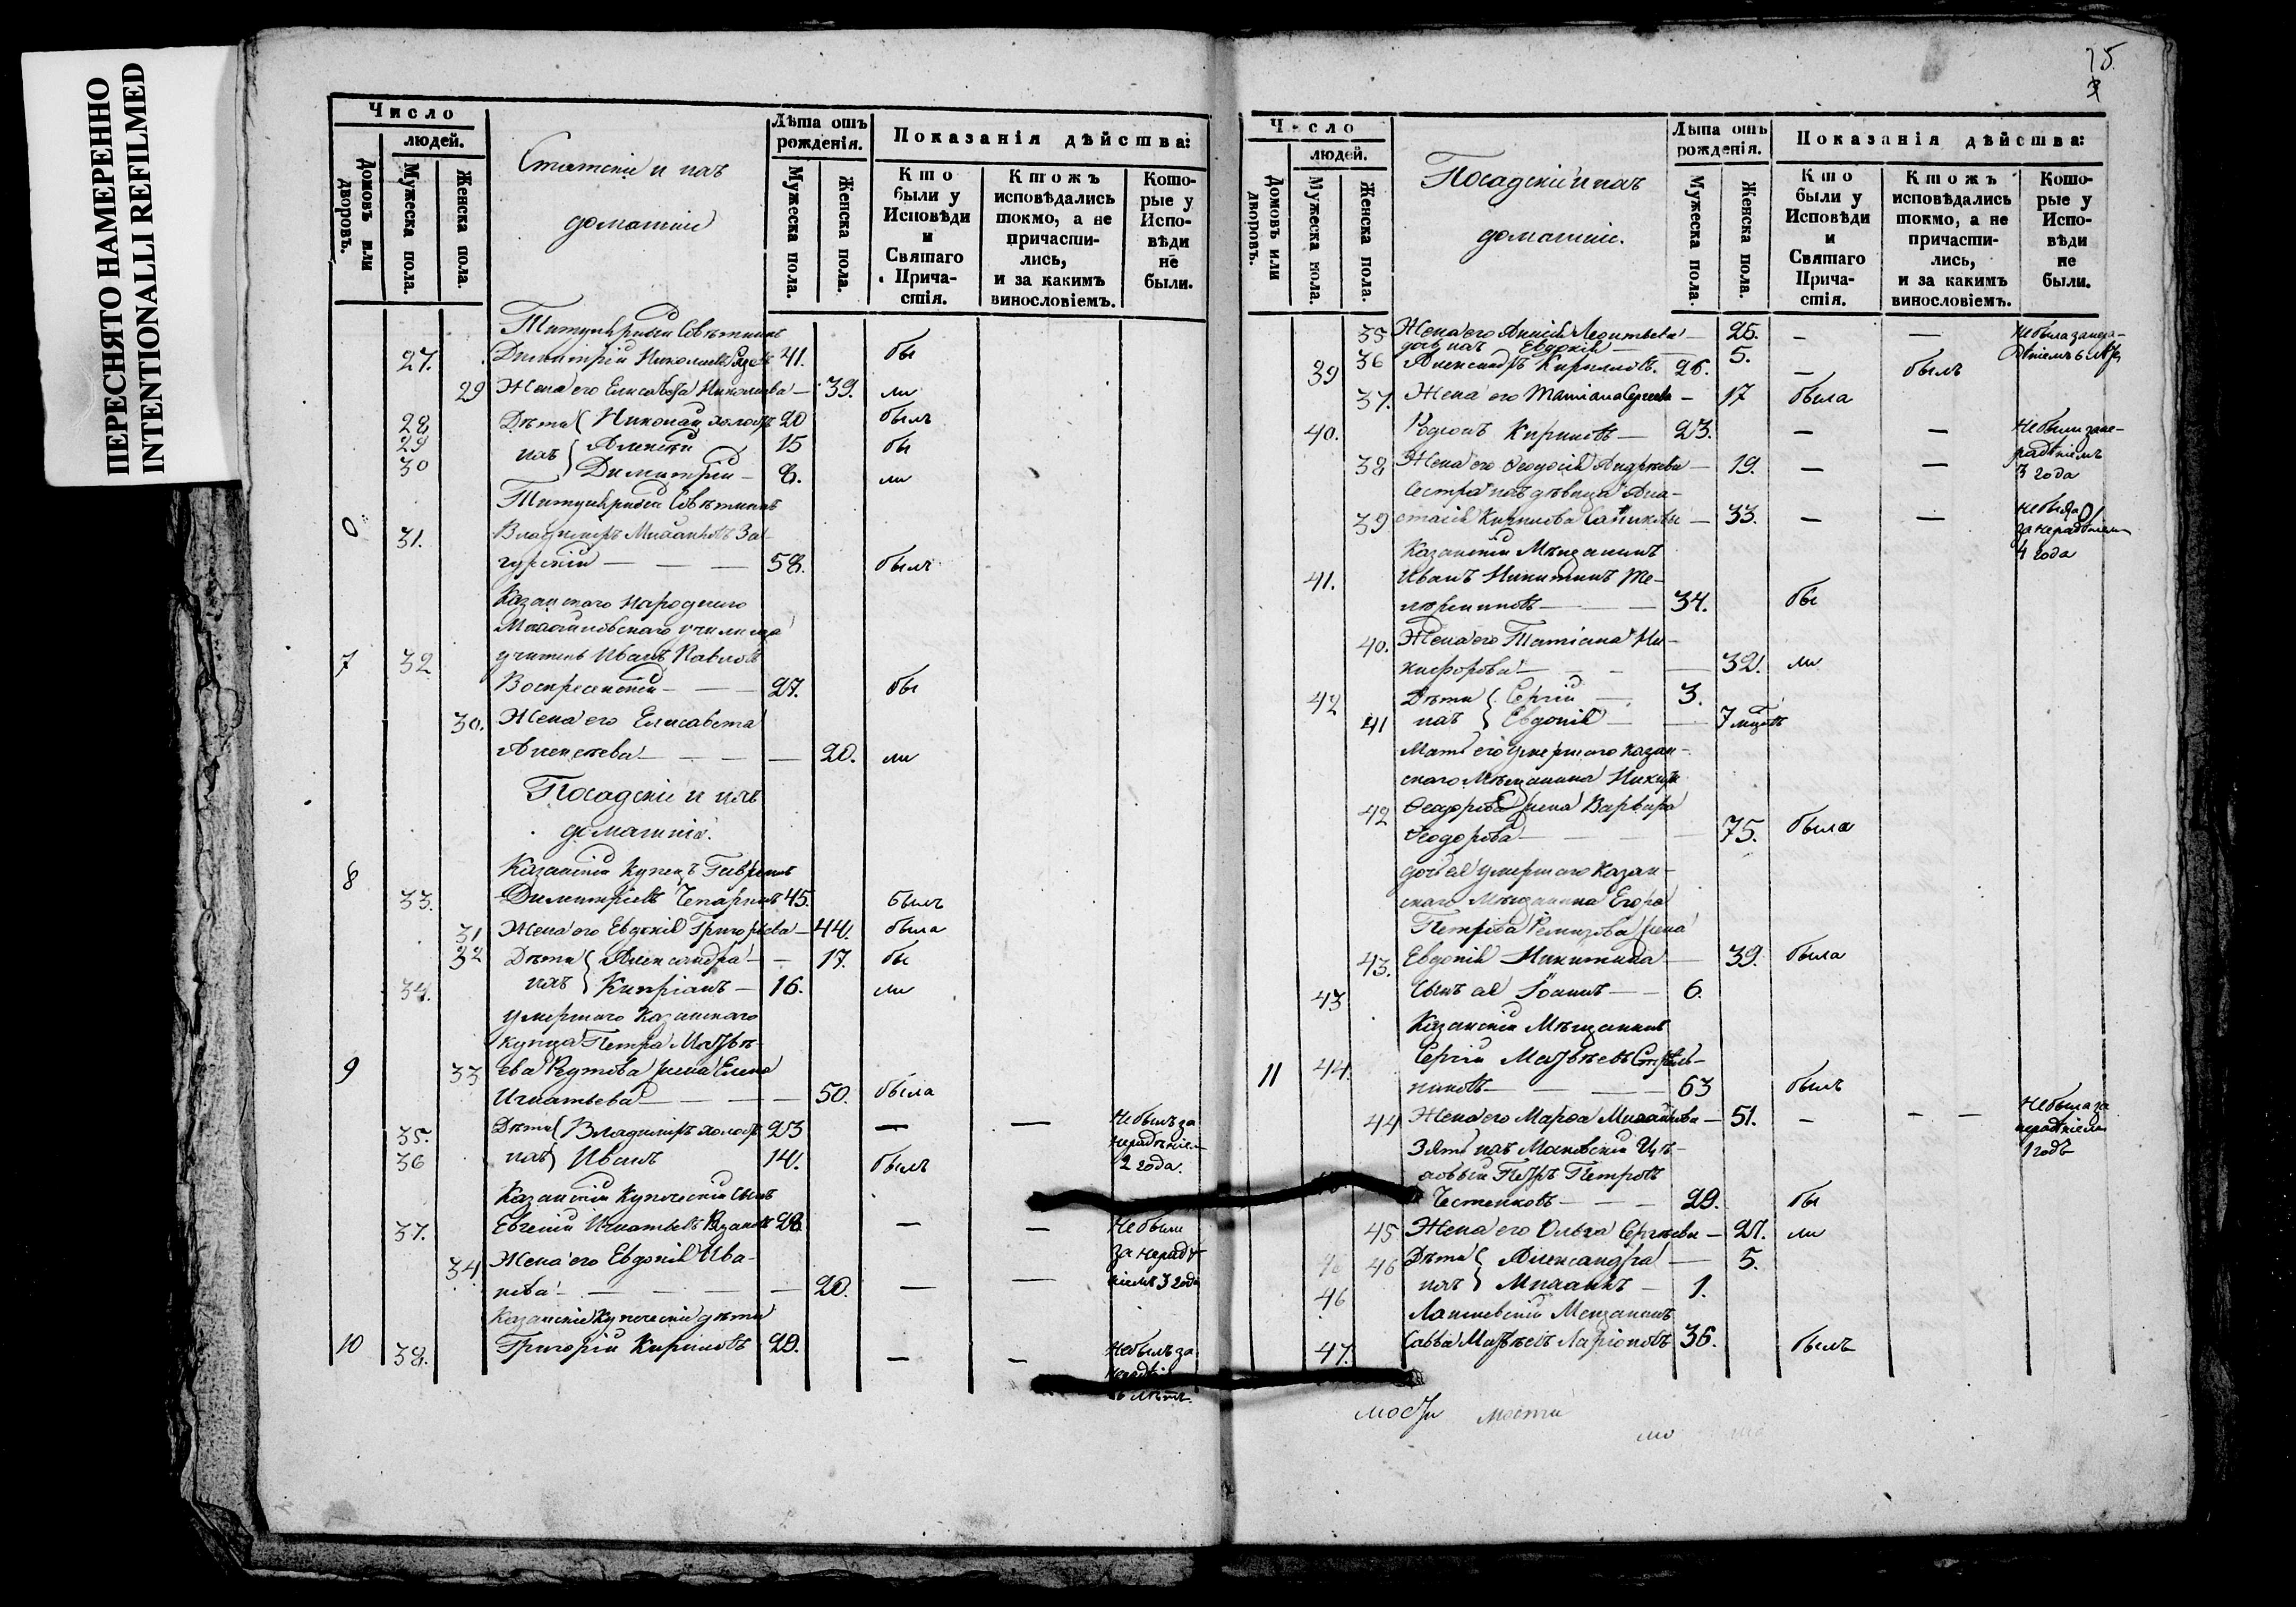 ПЕРЕСНЯТО НАМЕРЕННО
INTENTIONALLI REFILMED
Число
людей.
Домовъ или дворовъ.
Мужеска пола.
Женска пола.
Статскіе и ихъ
домашніе
Лѣта отъ рожденія.
Мужеска пола.
Женска пола.
Показанія дѣйства:
Кто были у Исповѣди и Святаго Причастія.
Ктожъ исповѣдались токмо, а не причастились, и за какимъ винословіемъ.
Которые у Исповѣди не были.
Титулярный Совѣтникъ
27. Димитрій Николаевъ 41. бы
29 Жена его Елисавета Николаева — 39. ли
28 Дѣти Николай холостъ 20 былъ
29 ихъ Алексѣй 15 бы
30 Димитрій — 8. ли
Титулярный Совѣтникъ
31. Владимиръ Михайловъ За-
гурскій — — — 58. былъ
Казанскаго Народнаго
училища
7 32 учитель Иванъ Павловъ
Воскресенскій — — 27. бы
30. Жена его Елисавета
Алексѣева — — — 20. ли
Посадскіе и ихъ
домашніе.
8 Казанскій Купецъ Гаврилъ
33. Димитріевъ 45. былъ
31 Жена его Евдокія Григорьева — 44. была
32 Дѣти Александра — — 17. бы
34. ихъ Кипріанъ — 16. ли
умершаго Казанскаго
купца Петра Матвѣ-
9 33 ева жена Елена
Игнатьева — — — 50. была
35. Дѣти Владимиръ холостъ 23 — — Небылъ за
нерадѣніем
36 ихъ Иванъ 14. былъ 2 года.
Казанскій Купеческій сынъ
37. Евгеній Игнатьевъ 28. — — Небыли
34 Жена его Евдокія Ива- за нерадѣ-
нова — — — — 20. — — ніемъ 3 года
Казанскіе Купеческіе дѣти
10 38. Григорій Кириловъ 29. — — Небылъ за
нерадѣ
6 лѣтъ.
75.
3
Число
людей.
Домовъ или дворовъ.
Мужеска пола.
Женска пола.
Посадскіе и ихъ
домашніе.
Лѣта отъ рожденія.
Мужеска пола.
Женска пола.
Показанія дѣйства:
Кто были у Исповѣди и Святаго Причастія.
Ктожъ исповѣдались токмо, а не причастились, и за какимъ винословіемъ.
Которые у Исповѣди не были.
35 Жена его Леонтьева — 25. — — Небыла за нера-
36 дочь ихъ Евдокія — 5. дѣніемъ 6 лѣт
39 Александръ Кириловъ. 26. — былъ
37. Жена его Татіана Сергеева — 17 была
40. Родіонъ Кириловъ — 23. — — Небыли за не-
радѣніемъ
38 Жена его Ѳеодосія Андреева — 19. — — 3 года
Сестра ихъ дѣвица Ана-
39 стасія Кирилова — 33. — — небыла
за нерадѣніем
4 года
Казанскій Мѣщанинъ
41. Иванъ Никитинъ Те-
— — 34. бы
40. Жена его Татіана Ни-
кифорова — — — 32. ли
42 Дѣти Сергій — 3.
41 ихъ Евдокія — — 7 мцовъ
Мать его умершаго казан-
скаго Мѣщанина Никиты
42 Ѳеодорова жена Варвара
Ѳеодорова — — — 75. была
дочь ея умершаго Казан-
скаго Мѣщанина Егора
Петрова Ремизова жена
43. Евдокія Никитина — 39. была
43 Сынъ ея Іоаннъ — — 6.
Казанскій Мѣщанинъ
11 44. Сергій Матвѣевъ Стрѣль-
никовъ — — — 63 былъ
44 Жена его Марѳа Михайлова — 51. — — — Небыла за
нерадѣніем
1 годъ
Зять ихъ Цѣ-
ховый Петръ Петровъ
Честенковъ — — — 29. бы
45 Жена его Ольга Сергѣева — 27. ли
46 46 Дѣти Александра — 5.
46 ихъ Михаилъ — 1.
Лаишевскій Мещанинъ
47. Савва Матвѣевъ Ларіоновъ 36. былъ
мости мости
мо